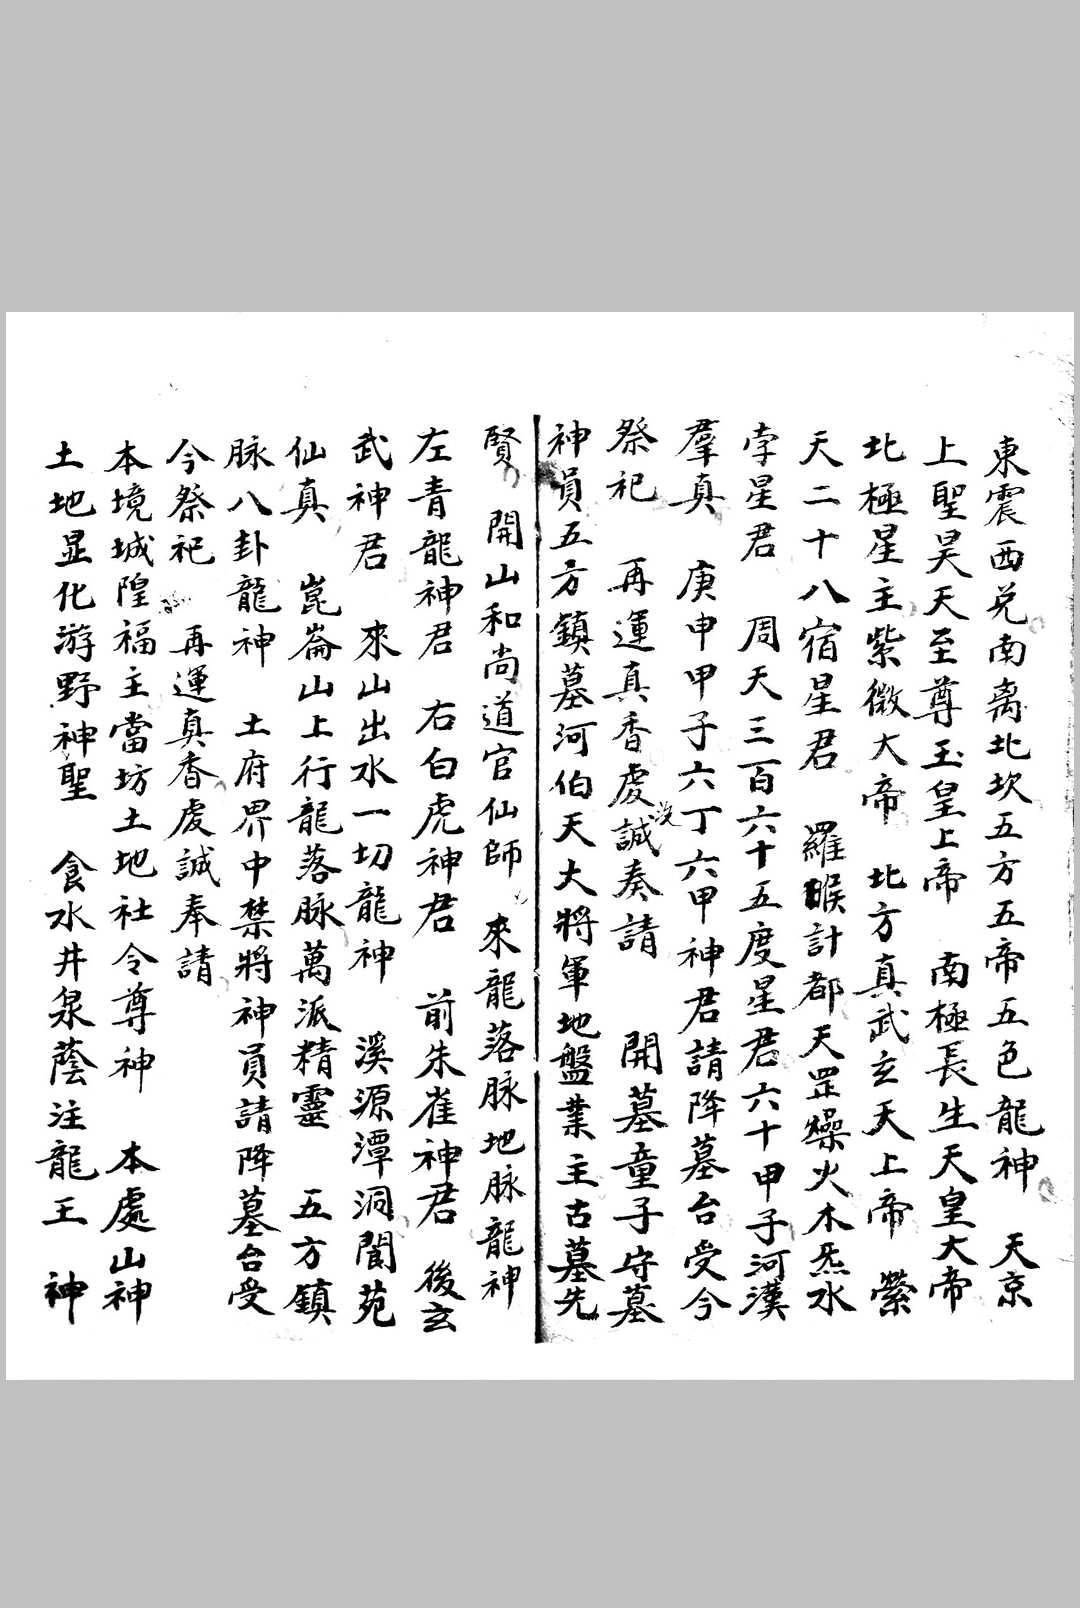 東震西兑南离北坎五方五帝五色龍神　天京
上聖昊天至尊玉皇上帝　南極長生天皇大帝
北極星主紫微大帝　北方真武玄天上帝　縈
天二十八宿星君　羅睺計都天罡燥火木炁水
孛星君　周天三百六十五度星君六十甲子河漢
羣真　庚申甲子六丁六甲神君請降墓台受今
祭祀　再運真香虔誠奏請　開墓童子守墓
神員五方鎮墓河伯天大將軍地盤業主古墓先
賢　開山和尚道官仙師　來龍落脉地脉龍神
左青龍神君　右白虎神君　前朱雀神君　後玄
武神君　來山出水一切龍神　溪源潭洞閬苑
仙真　崑崙山上行龍落脉萬派精靈　五方鎮
脉八卦龍神　土府界中禁將神員請降墓台受
今祭祀　再運真香虔誠奉請
本境城隍福主當坊土地社令尊神　本處山神
土地显化游野神聖　食水井泉蔭注龍王　神